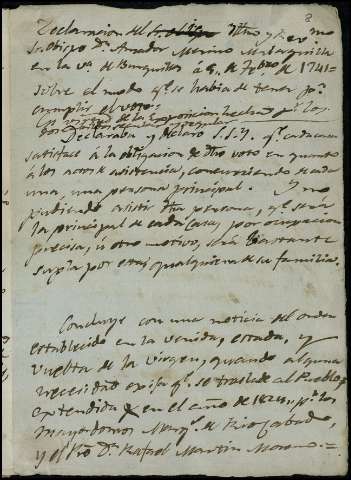 8
Declaracion del Illmo y Rvmo
Sr obispo Dn Amador Merino Malaguilla
en la va de Burguillos á 5 de Febro de 1741=
sobre el modo qe se habia de tener pa
cumplir el voto.
En virtud de la exposicion hecha pr los
dos
Declaraba y declaro S.S.Y. qe cada cual
satisface á la obligacion de dho voto en quanto
á los actos de asistencia, concurriendo de cada
una, una persona principal. Y no
pudiendo asistir dha persona, qe será
la principal de cada casa, por ocupacion
precisa, ú otro motivo, será bastante
supla por esta qualquiera de su familia.
Concluye con una noticia del orden
establecido en la venida, estada, y
vuelta de la virgen, quando alguna
necesidad exija qe se traslade al Pueblo,
extendida en el año de 1824, pr los
mayordomos Marqs de Rio Cabado,
y el Pro Dn Rafael Martin Moreno=